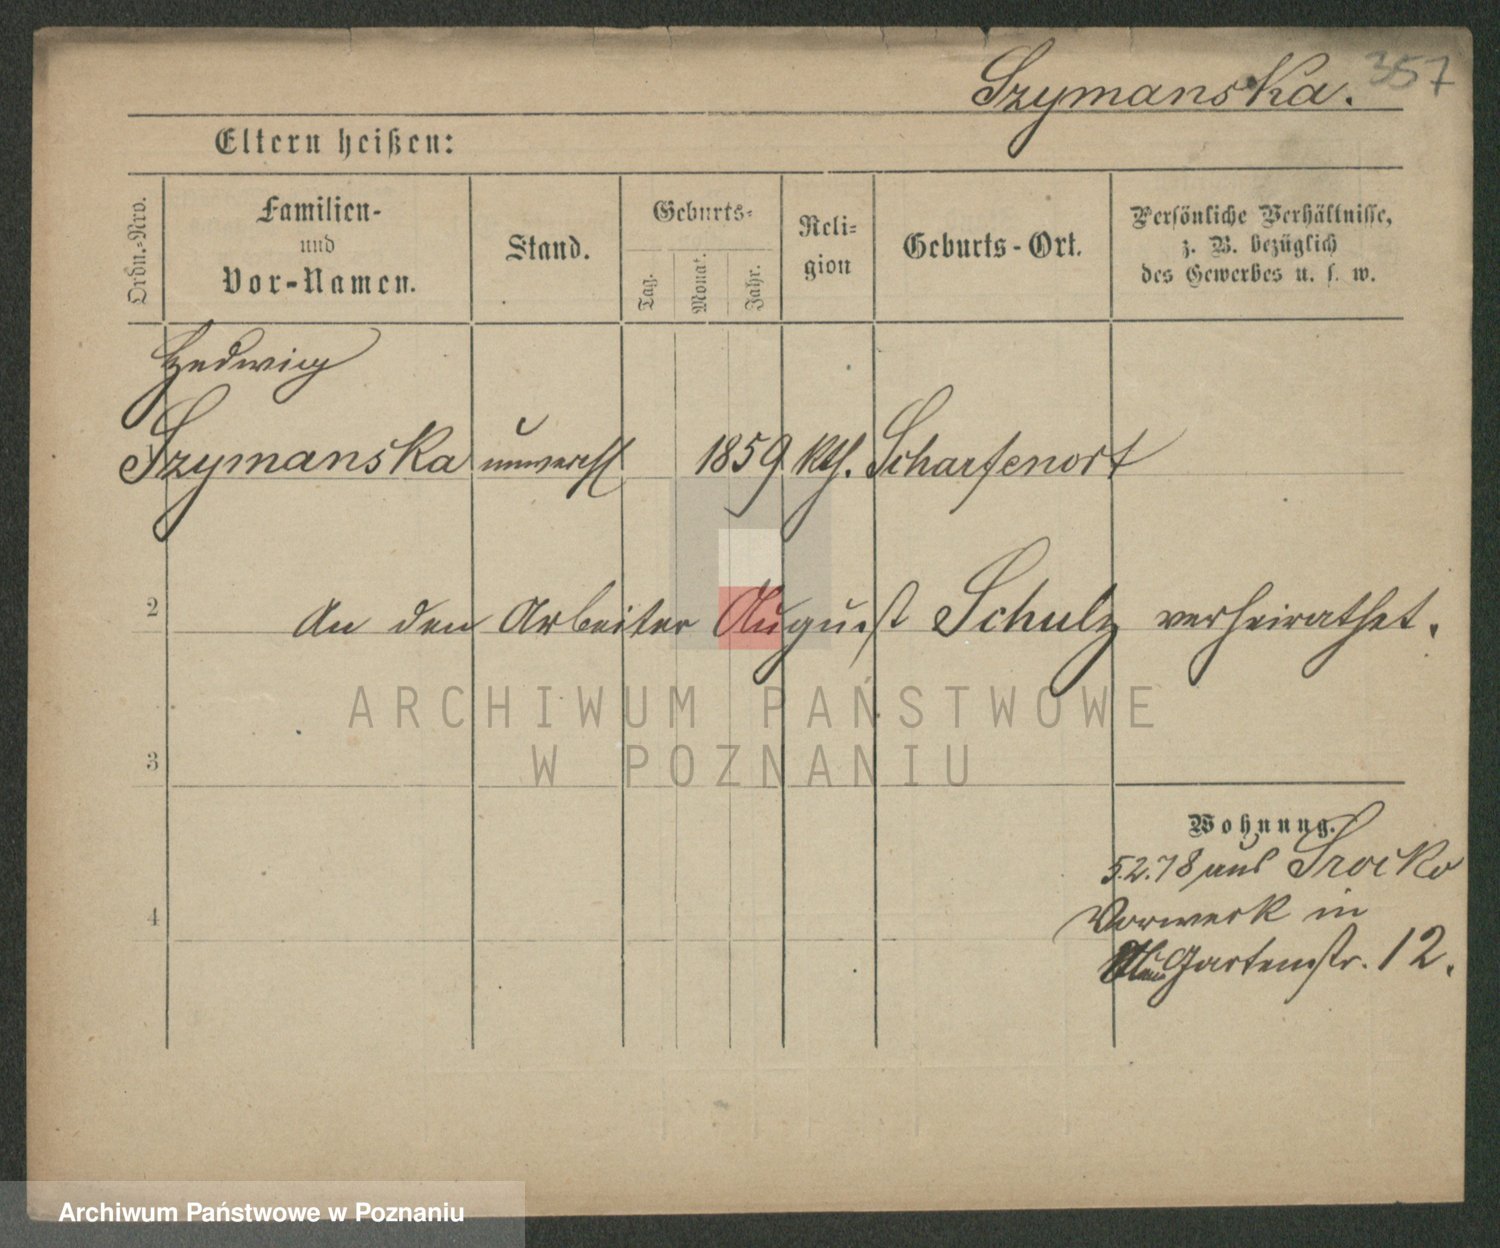 Szymanska. 357
Eltern heißen:
Ordn.-Nro.
Familien-
und
Vor-Namen.
Stand.
Geburts-
Tag.
Monat.
Jahr.
Reli-
gion
Geburts-Ort.
Persönliche Verhältnisse,
z. B. bezüglich
des Gewerbes u. s. w.
Hedwig
Szymanska unvereh 1859 kth. Scharfenort
2
An den Arbeiter August Schulz verheirathet.
ARCHIWUM PAŃSTWOWE
W POZNANIU
3
Wohnung.
5.2.78 aus Srocko
Vorwerk in
4
Gartenstr. 12.
Archiwum Państwowe w Poznaniu